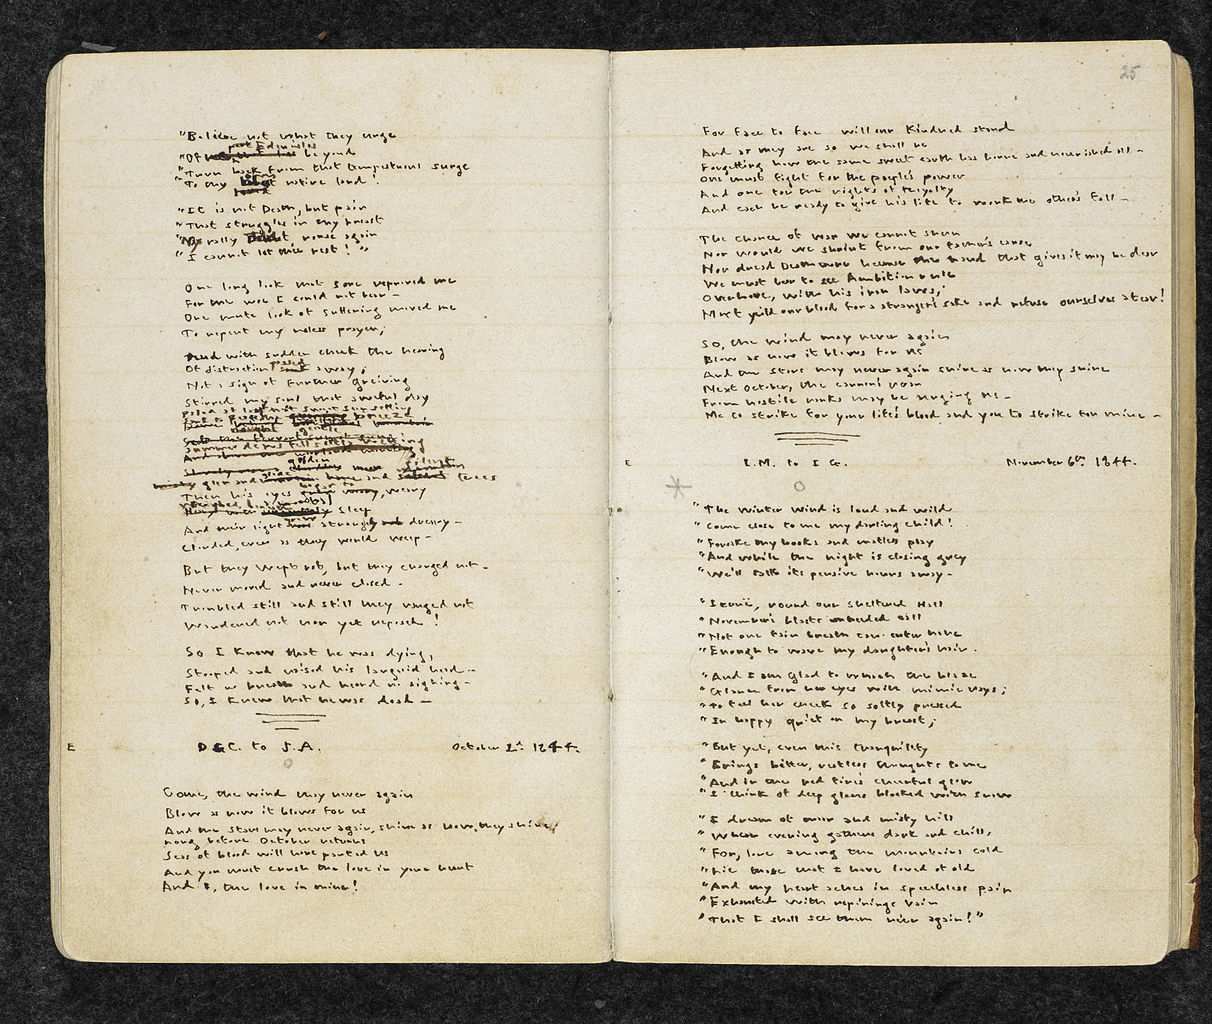 "Believe not what they urge
"Of Eden isles beyond
"Turn back from that tempestuous surge
"To my own native land!
"It is not Death, but pain
"That struggles in my breast
"Nay rally rouse again
"I cannot let thee rest!"
One long look that sore reproved me
For the woe I could not bear -
One mute look of suffering moved me
To repent my useless prayer;
And with sudden check the heaving
Of distraction passed away;
Not a sign of further grieving
Stirred my soul that awful day
Paled at last the sweet sun setting
Then his eyes began to weary
And their light so strangely dreary -
Clouded, even as they would weep -
But they wept not, but they changed not -
Never moved and never closed -
Troubled still and still they ranged not
Wandered not nor yet reposed!
So I knew that he was dying,
Stooped and raised his languid head -
Felt no breath and heard no sighing -
So, I knew that he was dead -
E
D.G.C. to J.A.
October 2d 1844.
Come, the wind may never again
Blow as now it blows for us
And the stars may never again, shine as now, they shine;
Long before October returns
Seas of blood will have parted us
And you must crush the love in your heart
And I, the love in mine!
25
For face to face will our kindred stand
And as they are so we shall be
Forgetting how the same sweet earth has borne and nourished all -
One must fight for the people's power
And one for the rights of Royalty
And each be ready to give his life to work the other's fall -
The chance of war we cannot shun
Nor would we shrink from our fathers' cause
Nor dread Death more because the hand that gives it may be dear
We must bear to see Ambition rule
Over Love, with his iron laws;
Must yield our blood for a stranger's sake and refuse ourselves a tear!
So, the wind may never again
Blow as now it blows for us
And the stars may never again shine as now they shine
Next October, the cannon's roar
From hostile ranks may be urging us -
Me to strike for your life's blood and you to strike for mine -
E
E.M. to I G.
November 6th 1844.
"The winter wind is loud and wild
"Come close to me my darling child!
"Forsake thy books and mateless play
"And while the night is closing grey
"We'll talk its pensive hours away -
"Iernë, round our sheltered Hall
"November's blasts unheeded call
"Not one faint breath can enter here
"Enough to wave my daughter's hair.
"And I am glad to watch the blaze
"Glance from her eyes with mimic rays;
"To feel her cheek so softly pressed
"In happy quiet on my breast;
"But yet, even this tranquillity
"Brings bitter, restless thoughts to me
"And in the red fire's cheerful glow
"I think of deep glens blocked with snow
"I dream of moor and misty hill
"Where evening gathers dark and chill,
"For, lone among the mountains cold
"Lie those that I have loved of old
"And my heart aches in speechless pain
"Exhausted with repinings vain
"That I shall see them ne'er again!"